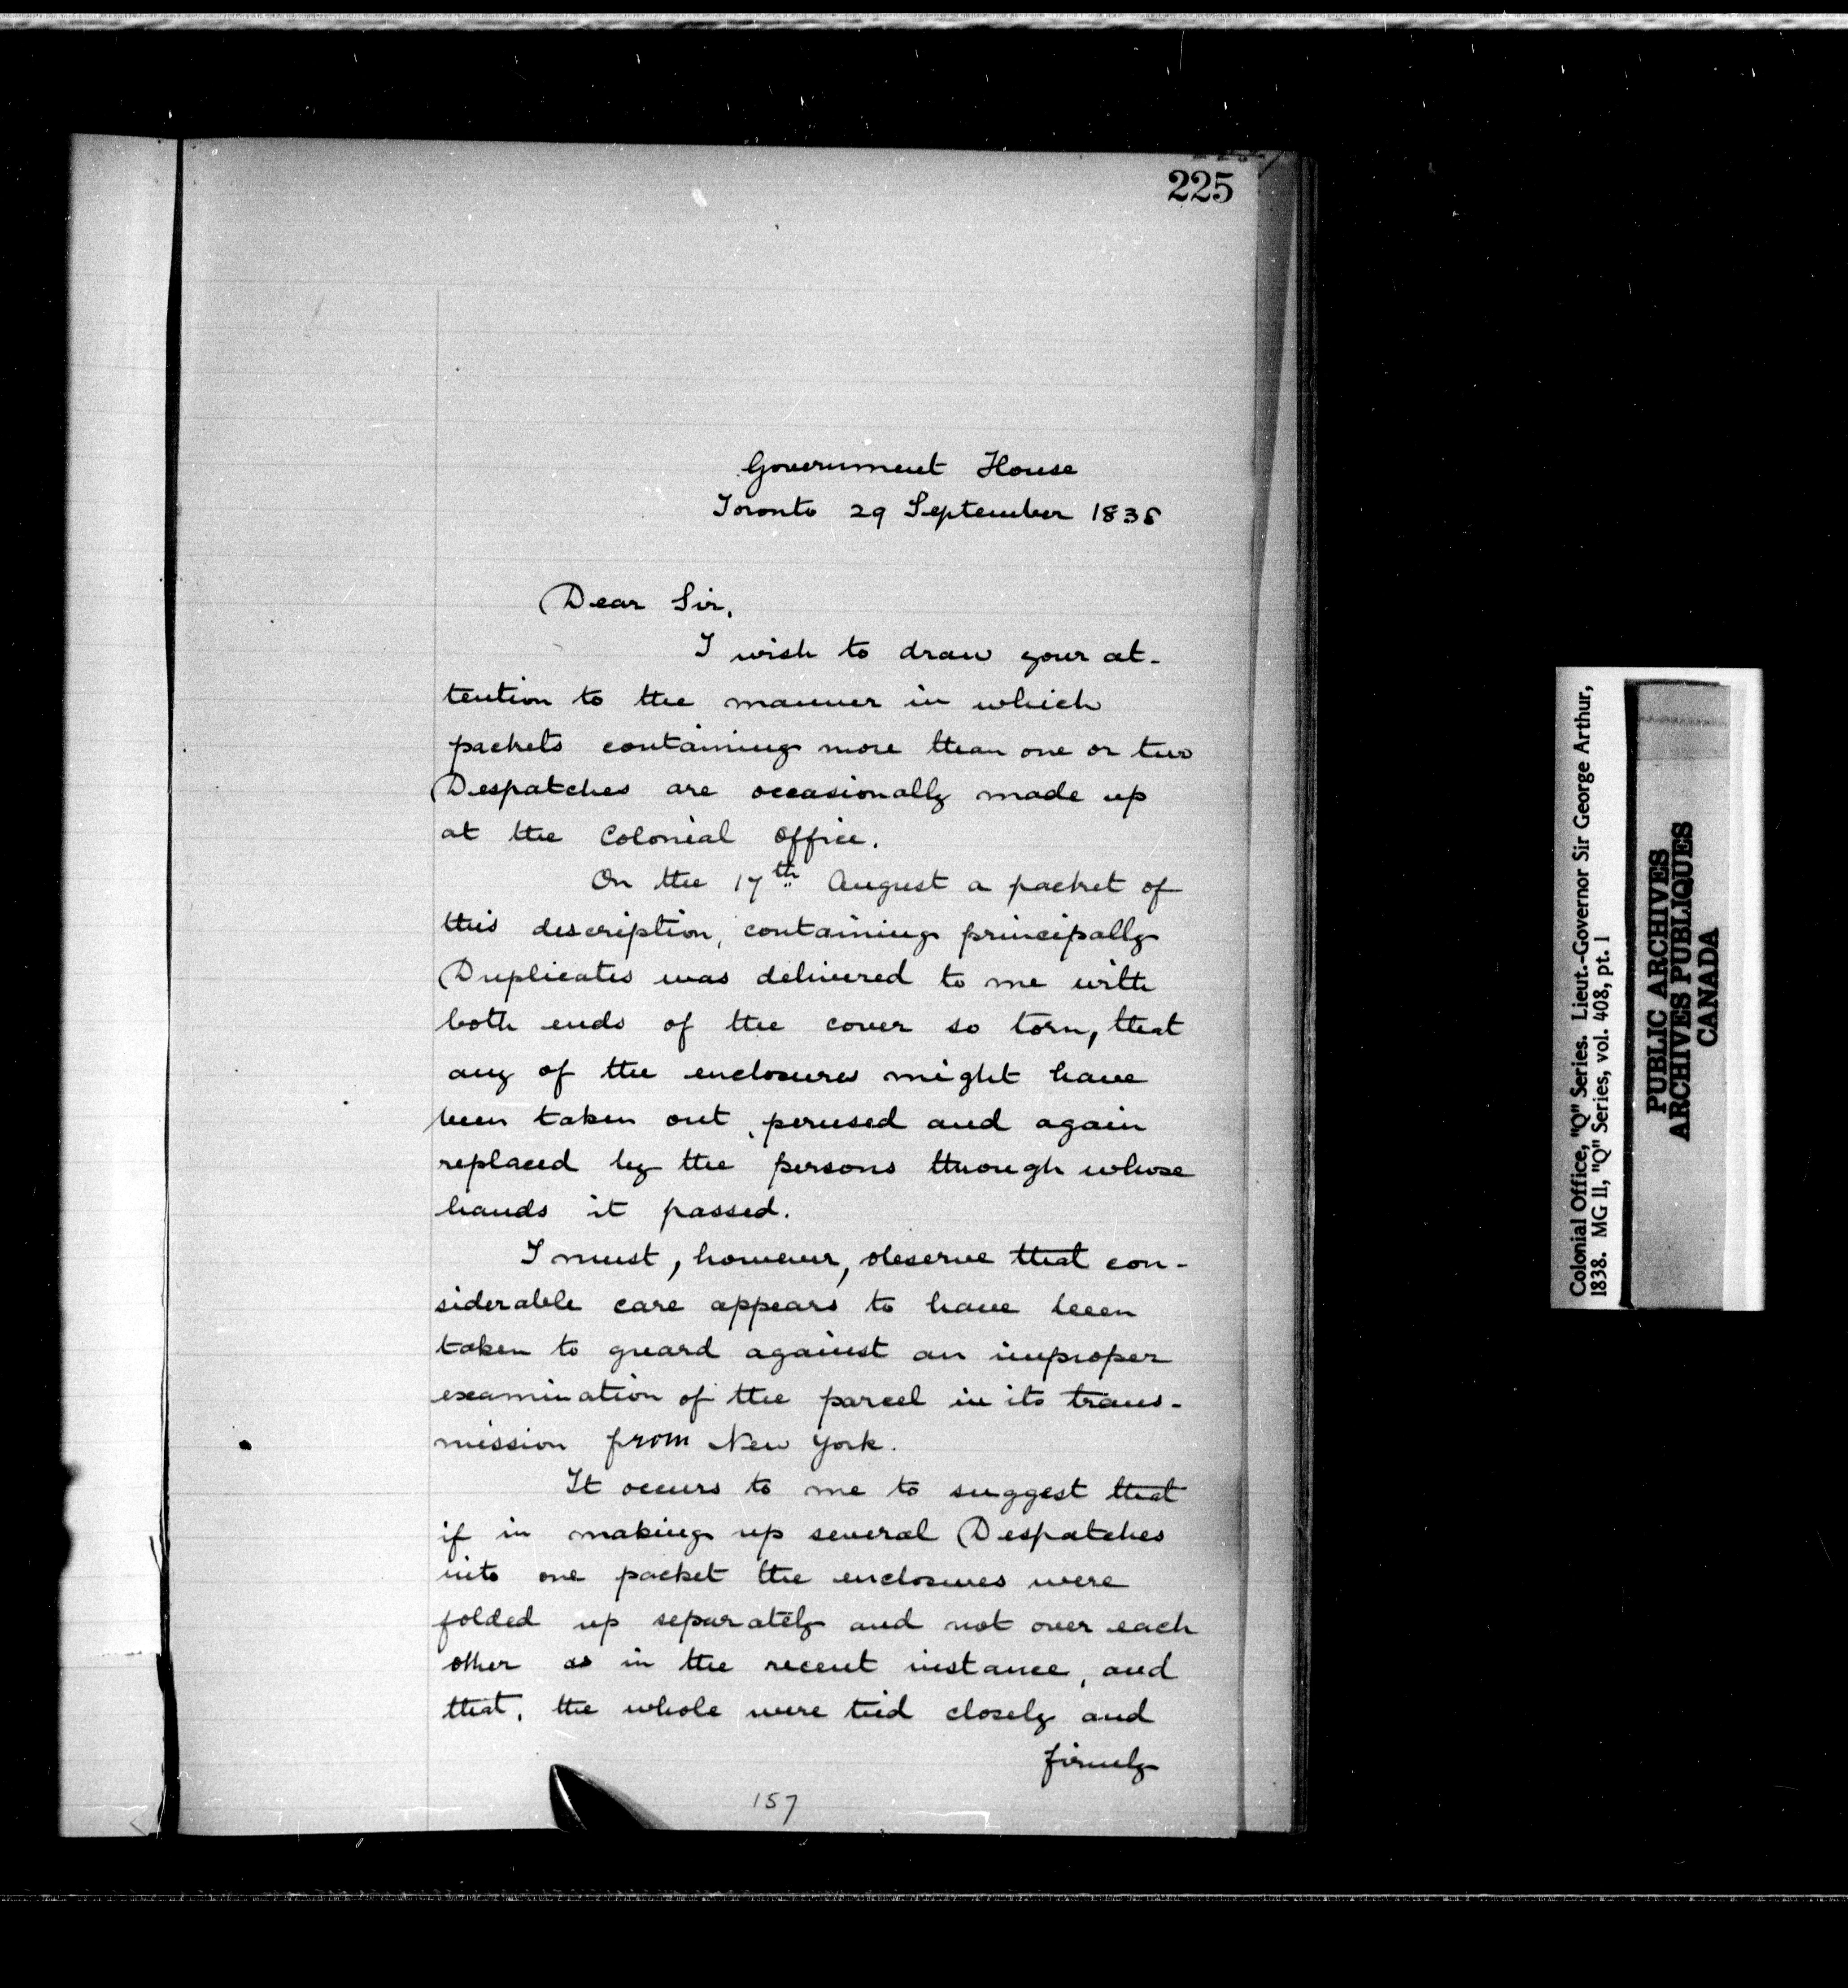 225
Government House
Toronto 29 September 1838
Dear Sir,
I wish to draw your at-
tention to the manner in which
packets containing more than one or two
Despatches are occasionally made up
at the Colonial Office.
On the 17th August a packet of
this description, containing principally
Duplicates was delivered to me with
both ends of the cover so torn, that
any of the enclosures might have
been taken out, perused and again
replaced by the persons through whose
hands it passed.
I must, however, observe that con-
siderable care appears to have been
taken to guard against an improper
examination of the parcel in its trans-
mission from New York.
It occurs to me to suggest that
if in making up several Despatches
into one packet the enclosures were
folded up separately and not over each
other as in the recent instance, and
that, the whole were tied closely and
firmly
157
Colonial Office, "Q" Series. Lieut.-Governor Sir George Arthur,
1838. MG 11, "Q" Series, vol. 408, pt. 1
PUBLIC ARCHIVES
ARCHIVES PUBLIQUES
CANADA